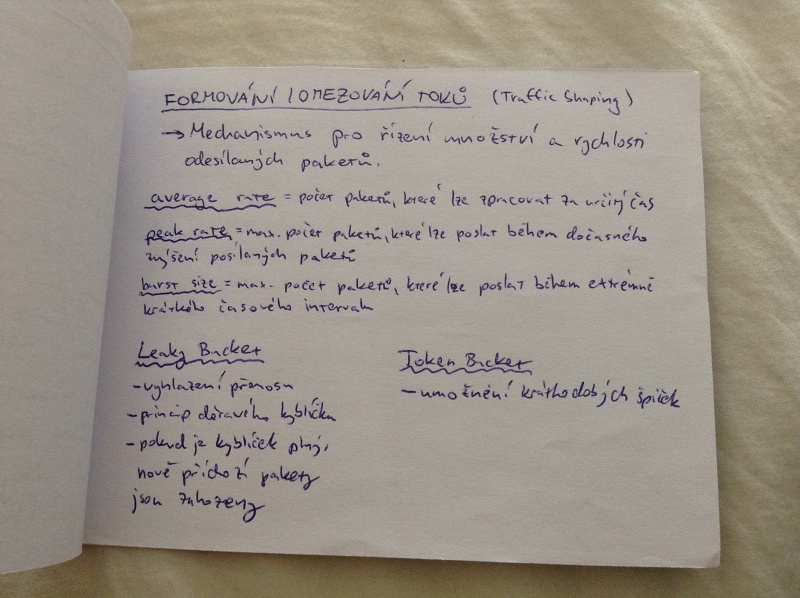 FORMOVÁNÍ / OMEZOVÁNÍ TOKŮ (Traffic Shaping)
→ Mechanismus pro řízení množství a rychlosti
odesílaných paketů.
average rate = počet paketů, které lze zpracovat za určitý čas
peak rate = max. počet paketů, které lze poslat během dočasného
zvýšení posílaných paketů
burst size = max. počet paketů, které lze poslat během extrémně
krátkého časového intervalu
Leaky Bucket
- vyhlazení přenosu
- princip děravého kyblíčku
- pokud je kyblíček plný,
nově příchozí pakety
jsou zahozeny
Token Bucket
- umožnění krátkodobých špiček